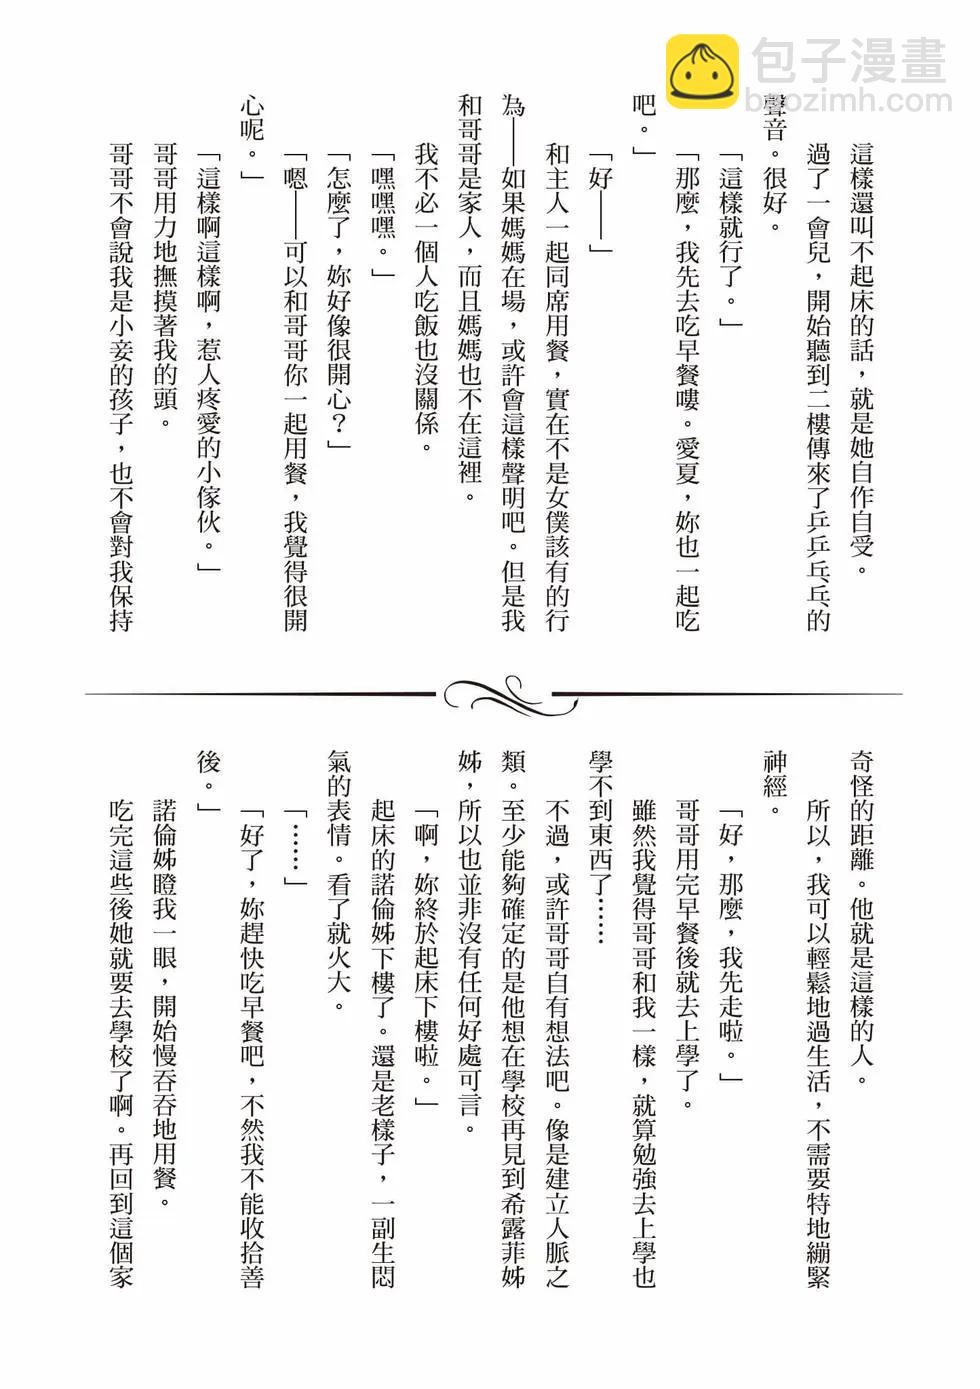 包子漫畫
baozimh.com
這樣還叫不起床的話，就是她自作自受。
過了一會兒，開始聽到二樓傳來了乒乒乓乓的
聲音。很好。
「這樣就行了。」
「那麼，我先去吃早餐嘍。愛夏，妳也一起吃
吧。」
「好——」
和主人一起同席用餐，實在不是女僕該有的行
為——如果媽媽在場，或許會這樣聲明吧。但是我
和哥哥是家人，而且媽媽也不在這裡。
我不必一個人吃飯也沒關係。
「嘿嘿嘿。」
「怎麼了，妳好像很開心？」
「嗯——可以和哥哥你一起用餐，我覺得很開
心呢。」
「這樣啊這樣啊，惹人疼愛的小傢伙。」
哥哥用力地撫摸著我的頭。
哥哥不會說我是小妾的孩子，也不會對我保持
奇怪的距離。他就是這樣的人。
所以，我可以輕鬆地過生活，不需要特地繃緊
神經。
「好，那麼，我先走啦。」
哥哥用完早餐後就去上學了。
雖然我覺得哥哥和我一樣，就算勉強去上學也
學不到東西了……
不過，或許哥哥自有想法吧。像是建立人脈之
類。至少能夠確定的是他想在學校再見到希露菲姊
姊，所以也並非沒有任何好處可言。
「啊，妳終於起床下樓啦。」
起床的諾倫姊下樓了。還是老樣子，一副生悶
氣的表情。看了就火大。
「……」
「好了，妳趕快吃早餐吧，不然我不能收拾善
後。」
諾倫姊瞪我一眼，開始慢吞吞地用餐。
吃完這些後她就要去學校了啊。再回到這個家